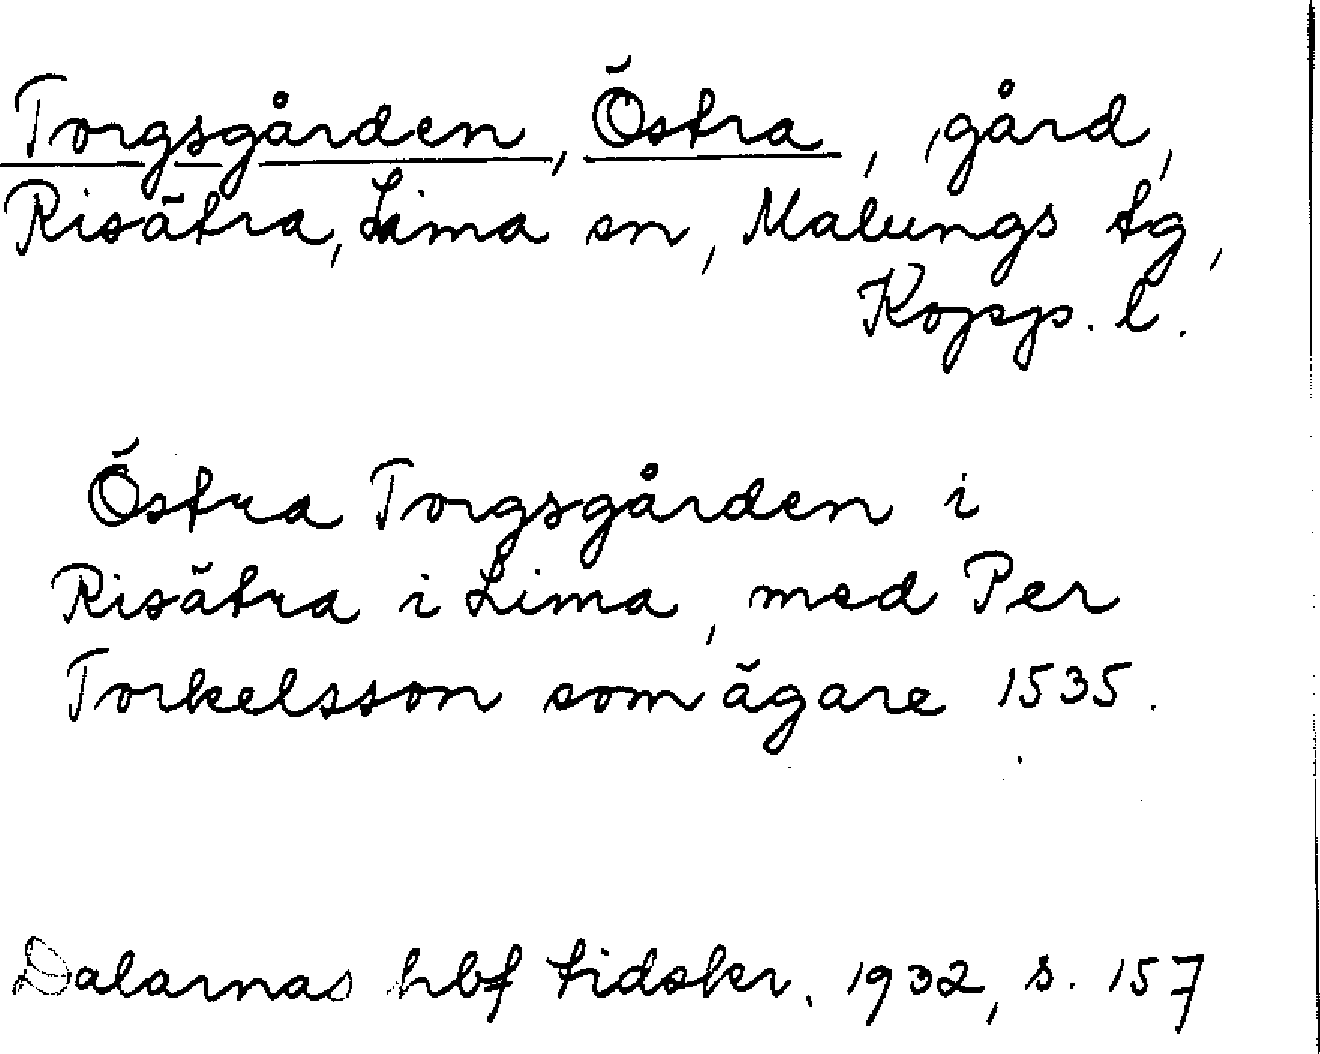 Torgsgården, Östra, gård,
Risätra, Lima sn, Malungs tg,
Kopp. l.
Östra Torgsgården i
Risätra i Lima, med Per
Torkelsson som ägare 1535.
Dalarnas hbf tidskr. 1932, s. 157